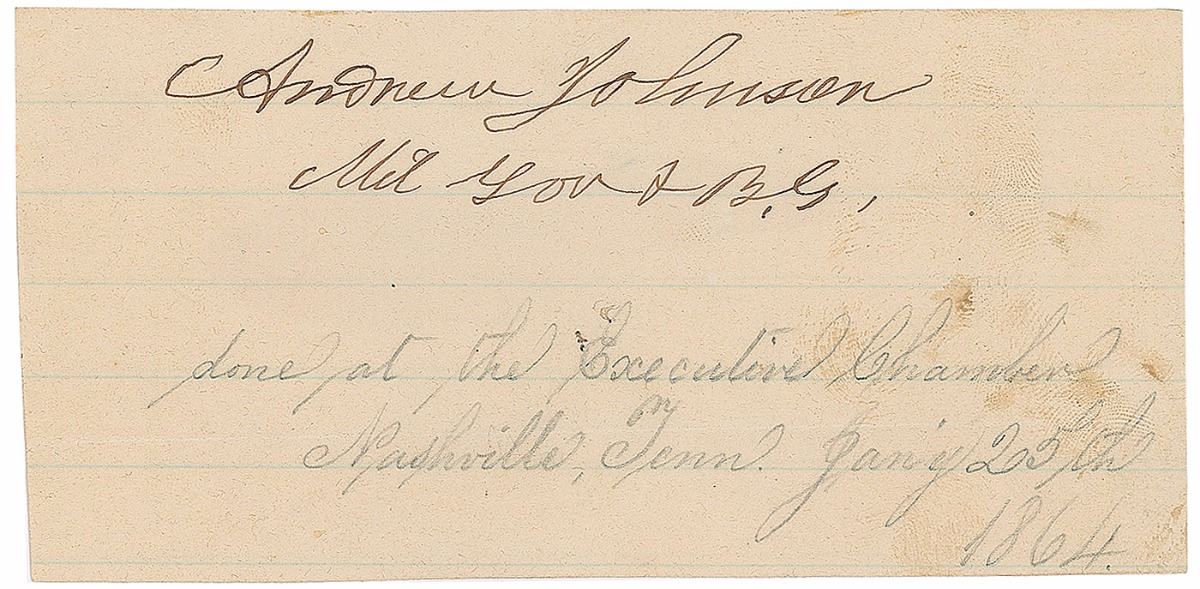 Andrew Johnson
Mil Gov & B.G,
done at the Executive Chamber
Nashville, Tenn. Jan'y 25th
1864.